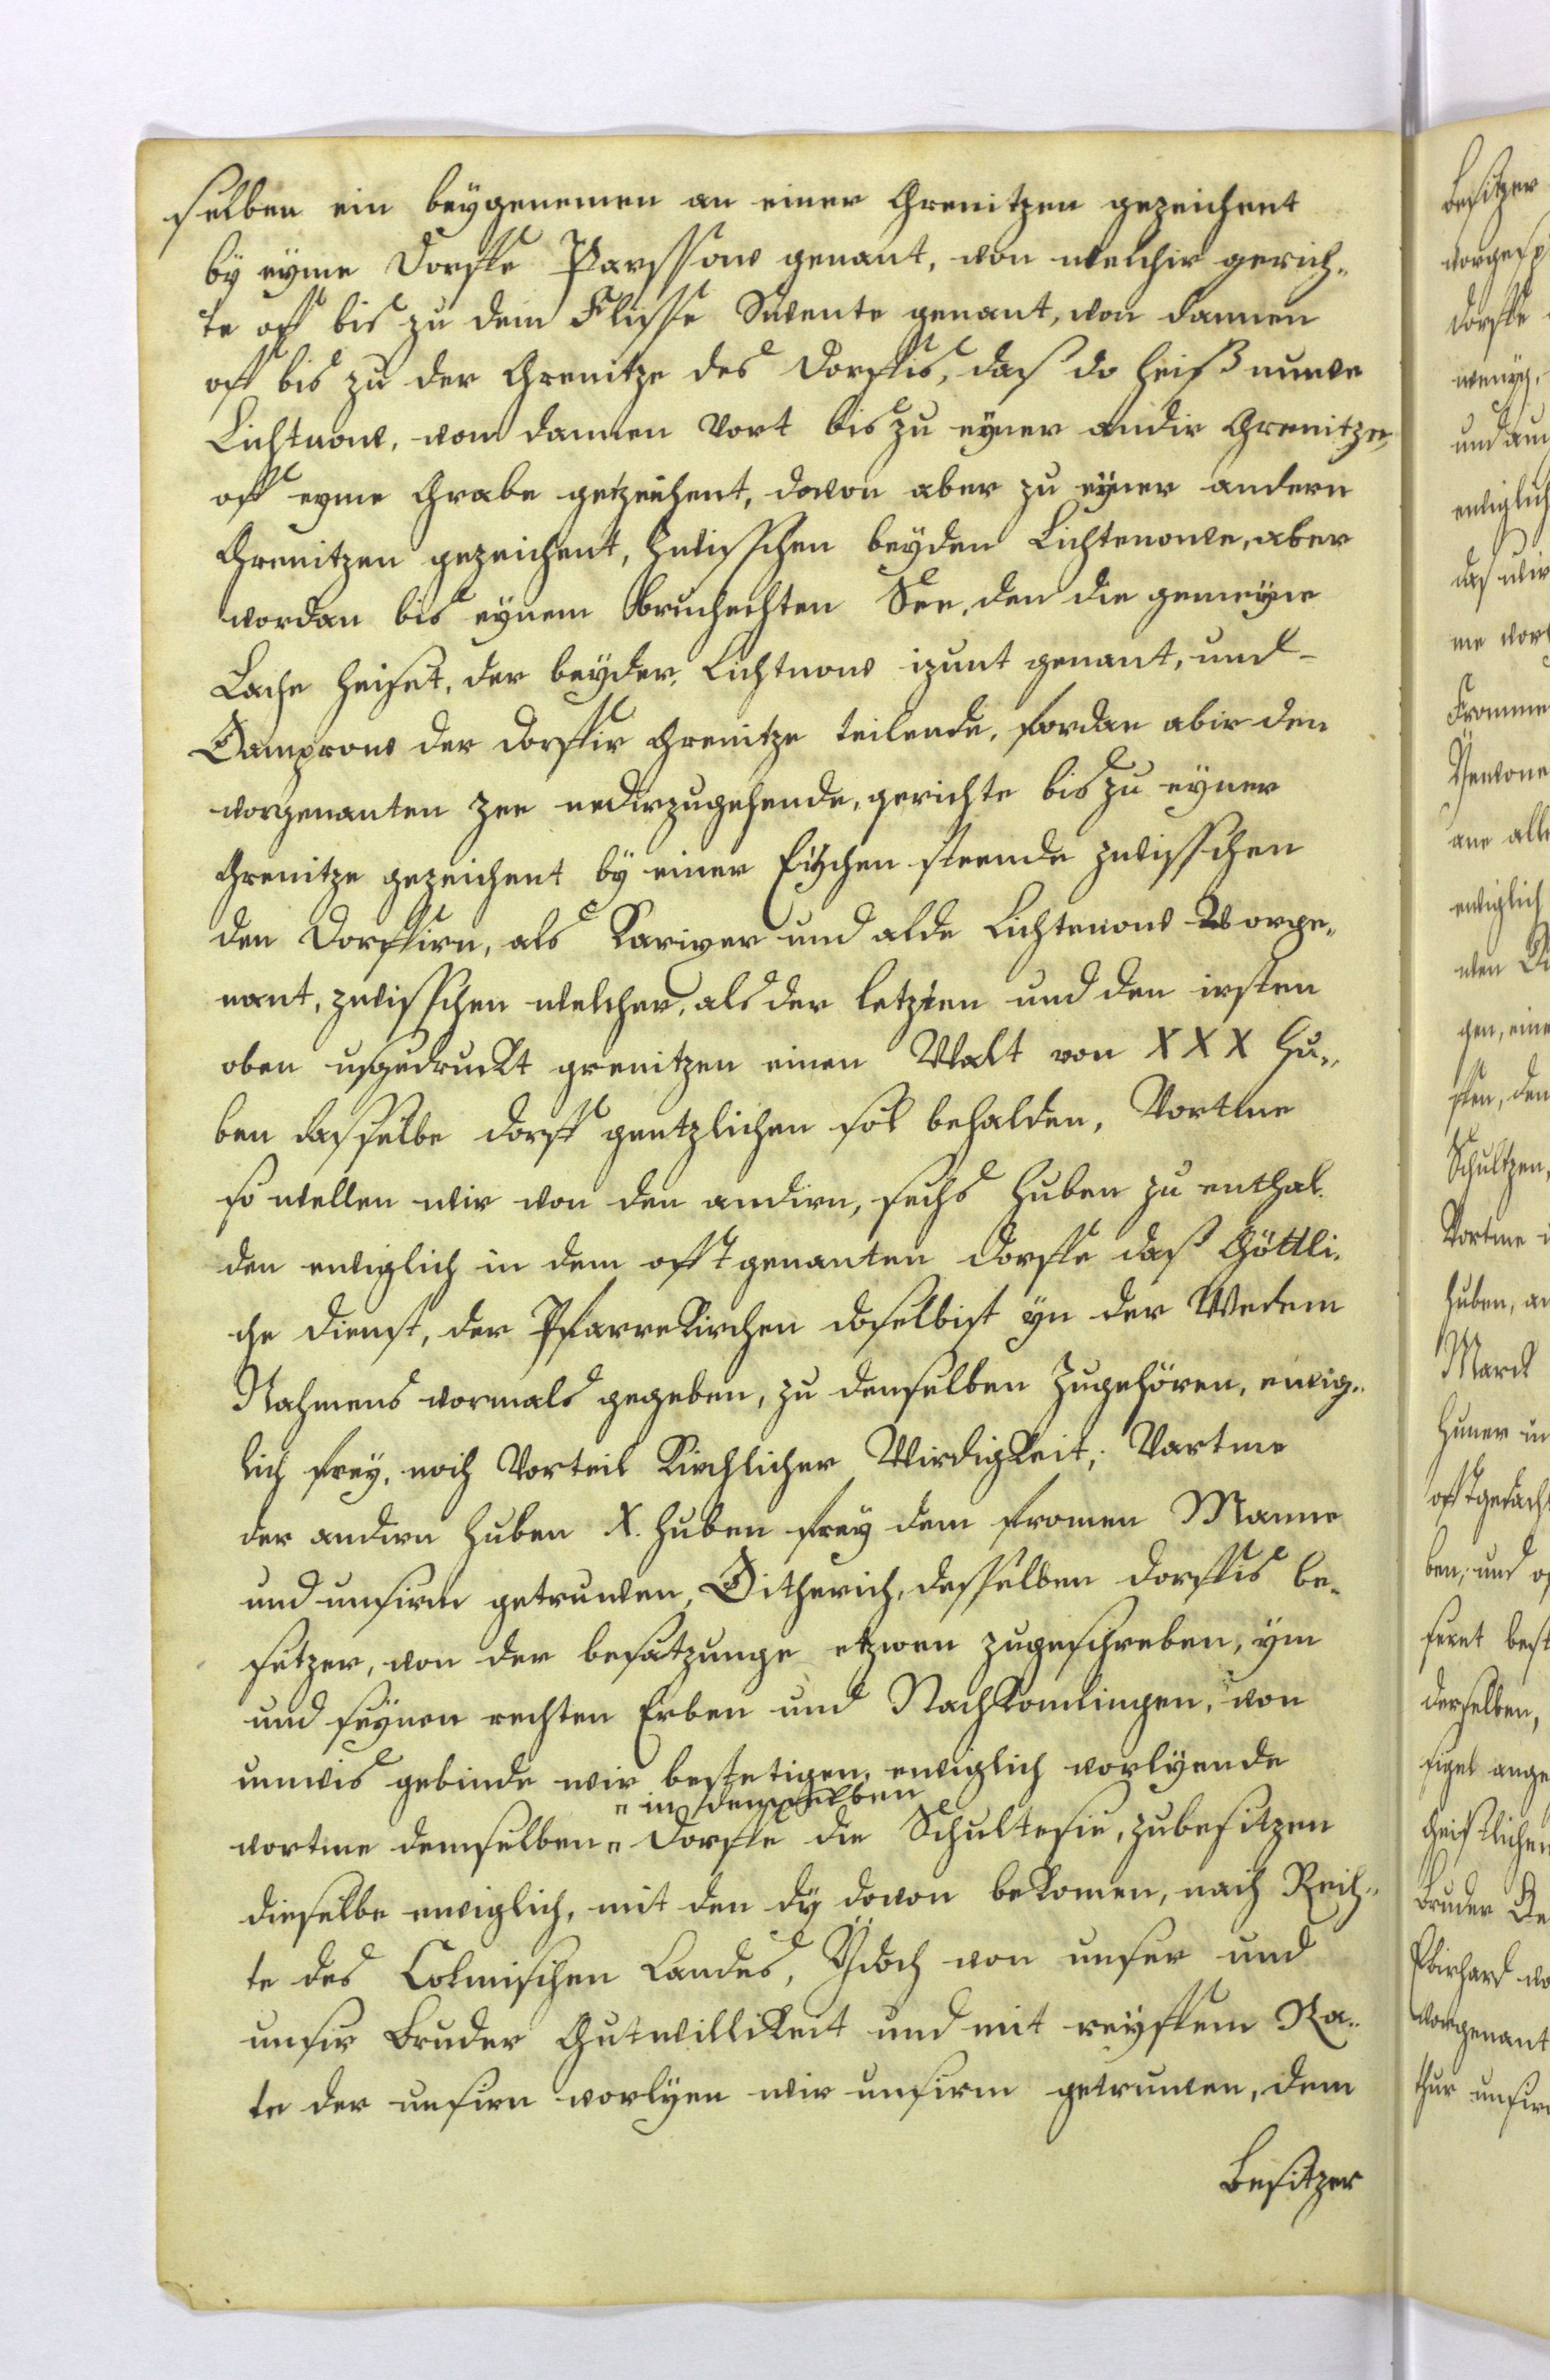 selben ein beygenemen an einer Grenitzen gezeichent
by eyme Dorffe Parssow genant, von welchir gerich„
te off bis zu dem Flisse Swente genant, von dannen
off bis zu der Grenitze des Dorffis, das do heiß nuwe
Lichtnow, von dannen vort bis zu eyner andir Grenitzen,
off eyme Grabe getzeichent, dovon aber zu eyner andern
Grenitzen gezeichent, zwisschen beyden Lichtenowe, aber
vordan bis eynem bruchechten See, den die gemeyne
Lache heiset, der beyder, Lichtnow izunt genant, und
Damprow der dorffir Grenitze teilende, fordan abir den
vorgenanten zee nedirzugehende, gerichte bis zu eyner
Grenitze gezeichent by einer Eychen steende zwisschen
den Dorffirn, als Kariver und alde Lichtenow Vorge„
nant, zwisschen welcher, als der letzten und den irsten
oben usgedruckt grenitzen einen Walt von XXX Hu„
ben dasselbe dorff gentzlichen sol behalden, Vortme
so wellen wir von den andirn, sechs Huben zu enthal„
den ewiglich in dem offtgenanten Dorffe das Göttli„
che dienst, der Pfarrekirchen doselbist yn der Wedem
Nahmens vormals gegeben, zu denselben Zugehören, ewig„
lich frey, noch Vorteil Kirchlicher Wirdigkeit; Vartme
der andirn Huben X. Huben frey dem fromen Manne
und unsirm getruwen, Ditherich, desselben dorffis be„
setzer, von der besatzunge etzwen zugeschreben, ym
und seynen rechten Erben und Nachkomlingen, von
unwis gebinde wir bestetigen, ewiglich vorlyende
„ in demselben
vortme demselben „ Dorffe die Schultesie, zubesitzen
dieselbe ewiglich, mit den dy dovon bekomen, nach Reich„
te des Colmischen Landes, Ydoch von unser und
unsir Bruder Gutwillikeit und mit reyffem Ra„
te der unsirn vorlyen wir unsirm getruwen, dem
Besitzer